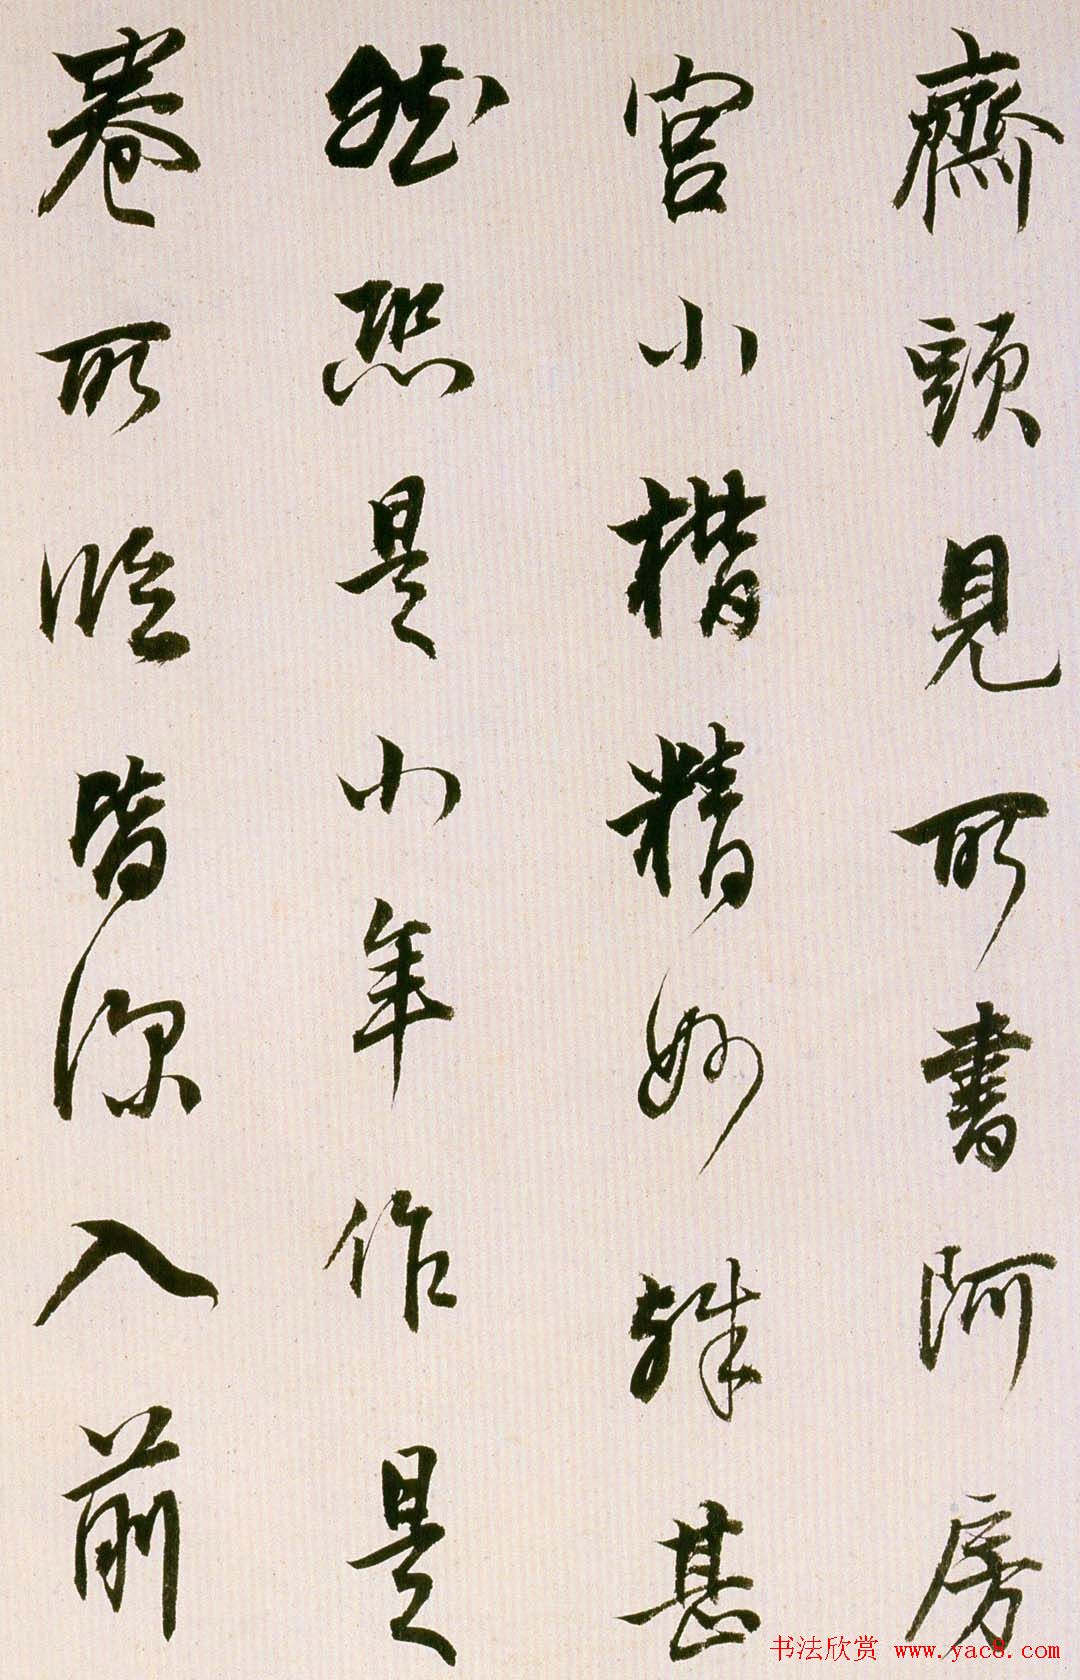 齋頭見所書阿房
宮小楷精妙殊甚
然恐是少年作是
卷所臨皆深入前
书法欣赏 www.yac8.com